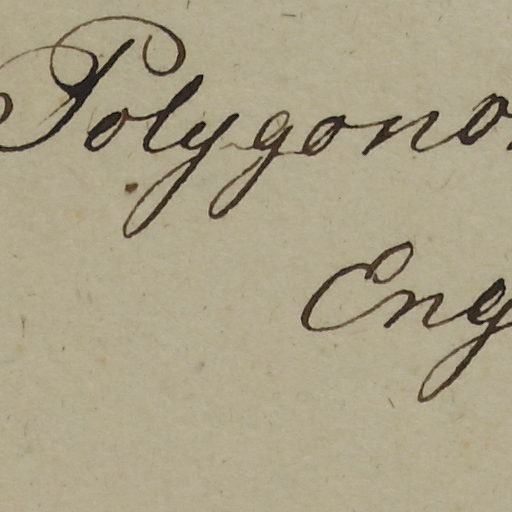 Polygono
Eng